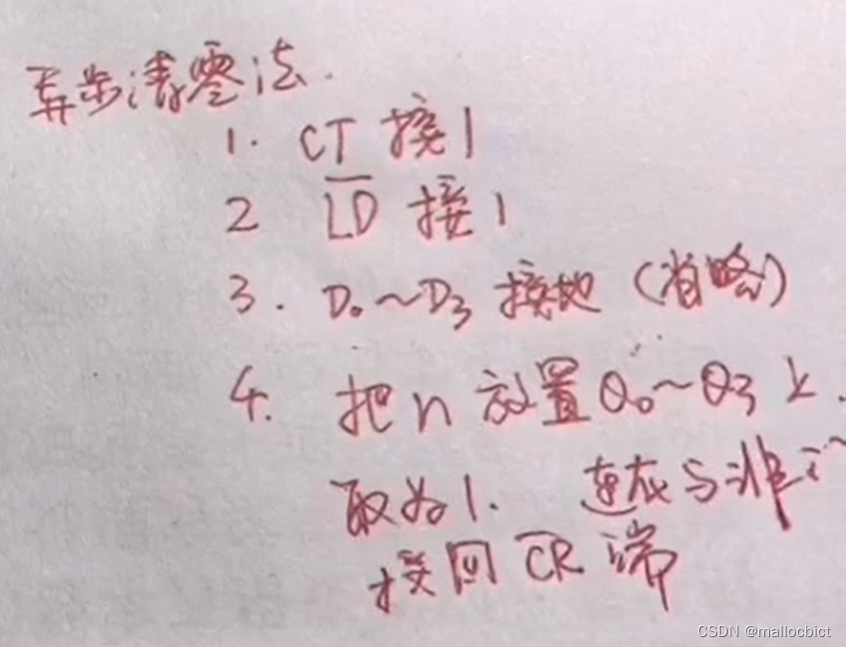 异步清零法.
1. CT 接1
2 L̅D̅ 接1
3. D₀~D₃ 接地 (省略)
4. 把n放置Q₀~Q₃上.
取为1. 连成与非门
接回 C̅R̅ 端
CSDN @mallocbict